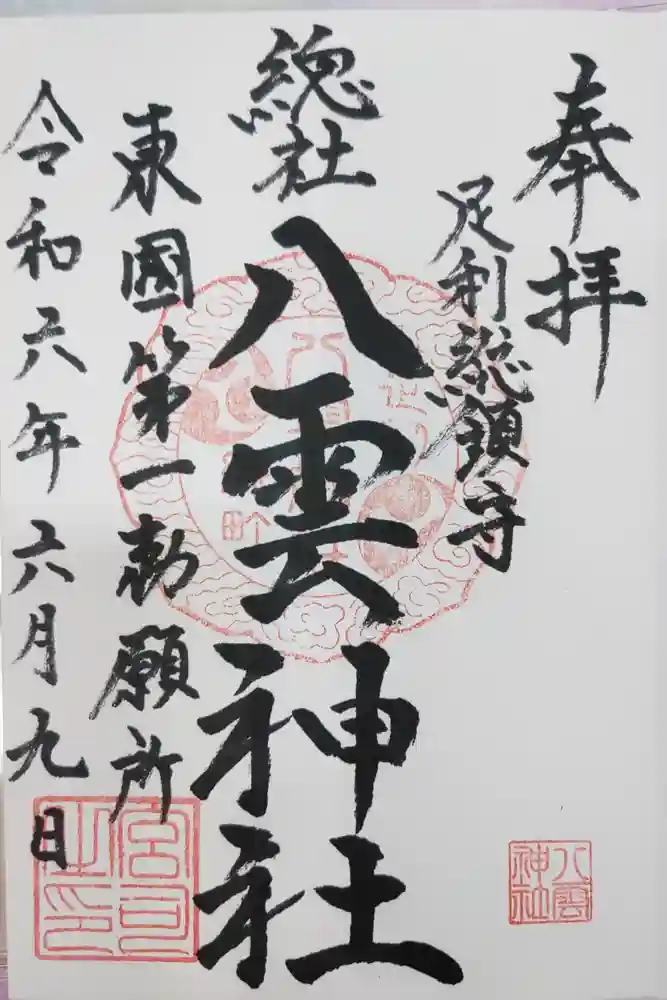 奉拝
足利総鎮守
總社
八雲神社
東國第一勅願所
令和六年六月九日
八雲神社
宮司之印